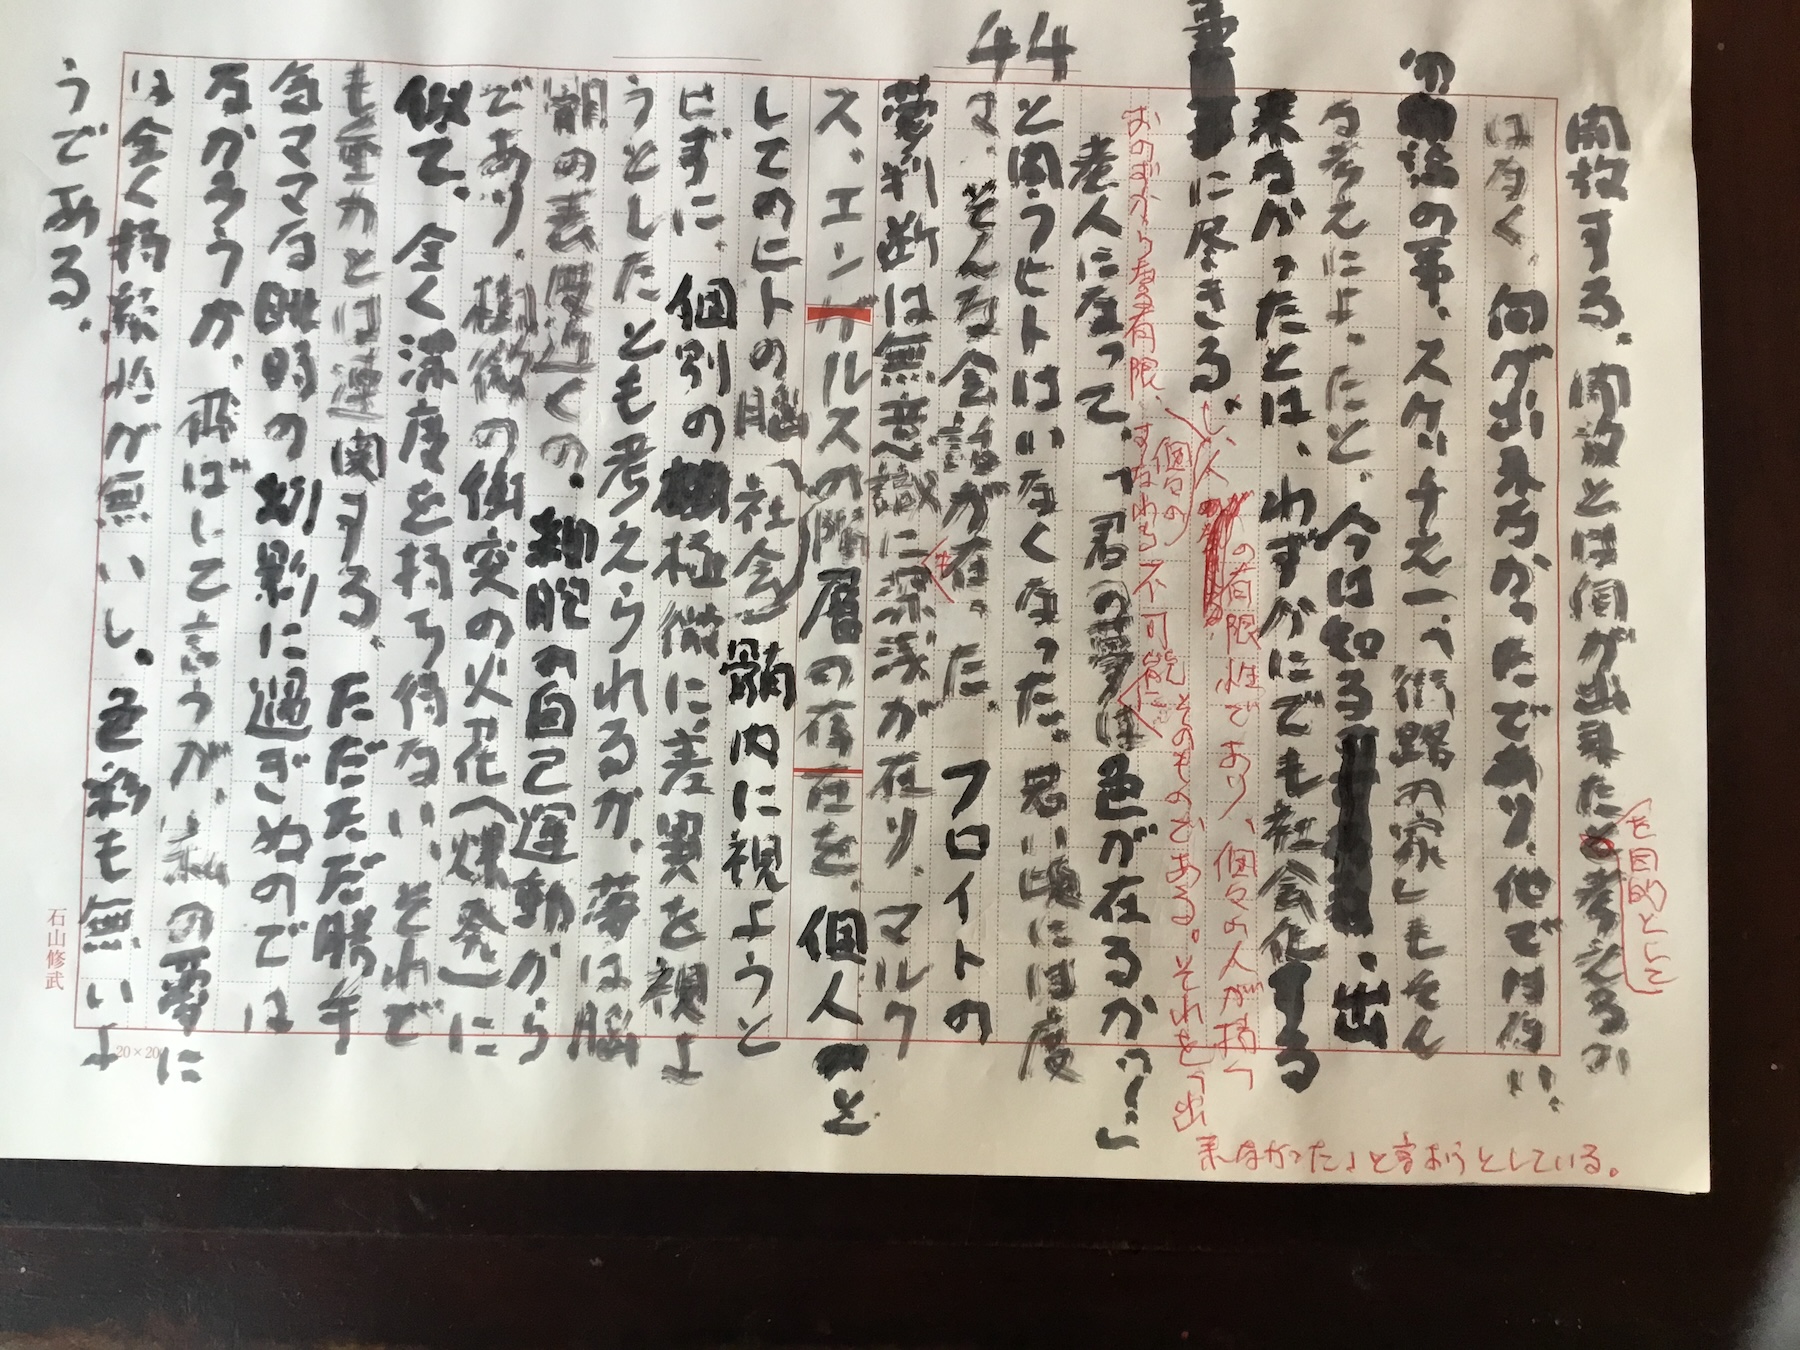 開放する。開放とは何が出来たと考えるの
を目的として
はなく、何が出来なかったであり、他では無い。
の事、スケッチ一つ、「街路の家」もそん
な考えによったと、今は知る。出
来なかったとは、わずかにでも社会化する
事に尽きる。
の有限性であり、個々の人が描く
個々の
おのずから有限、すなわち不可能そのものである。それを「出
来なかった」と言おうとしている。
44
老人になって、「君の夢は色が在るかつ!」
と問うヒトはいなくなった。若い頃には度
々、そんな会話が在った。フロイトの
も
夢判断は無意識に深浅が在り、マルク
ス、エンゲルスの階層の存在を、個人のと
してのヒトの脳(社会)髄内に視ようと
せずに、個別の極微に差異を視よ
うとしたとも考えられるが、夢は脳
髄の表層近くの、細胞の自己運動から
であり、極微の衝突の火花(爆発)に
似て、全く深度を持ち得ない。それで
も重力とは連関する。ただただ勝手
気ママな眺明の幻影に過ぎぬのでは
なかろうか。飛ばして言うが、私の夢に
は全く持続性が無いし、色彩も無いよ
うである。
20×20
石山修武